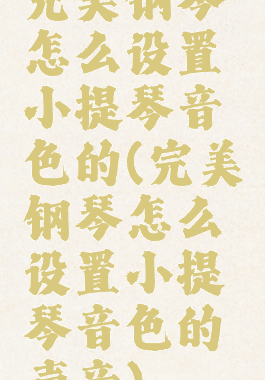 完美钢琴
怎么设置
小提琴音
色的(完美
钢琴怎么
设置小提
琴音色的
声音)